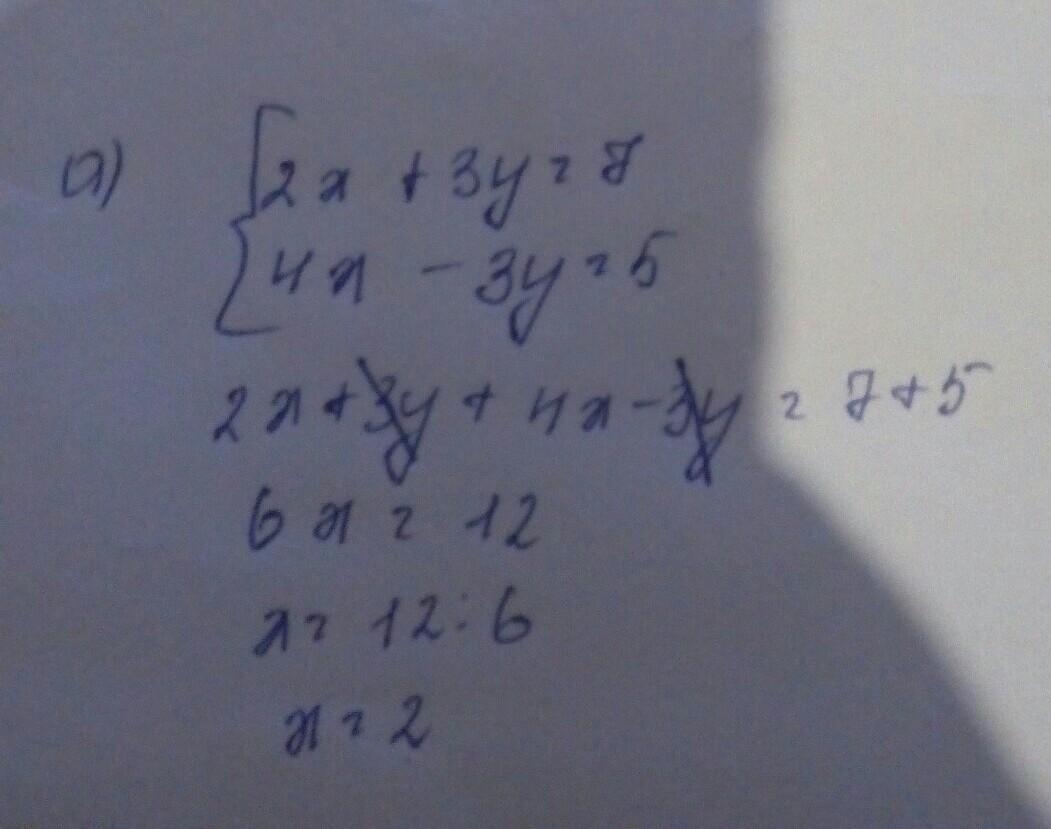 а) { 2x + 3y = 7
4x - 3y = 5
2x + 3y + 4x - 3y = 7 + 5
6x = 12
x = 12 : 6
x = 2